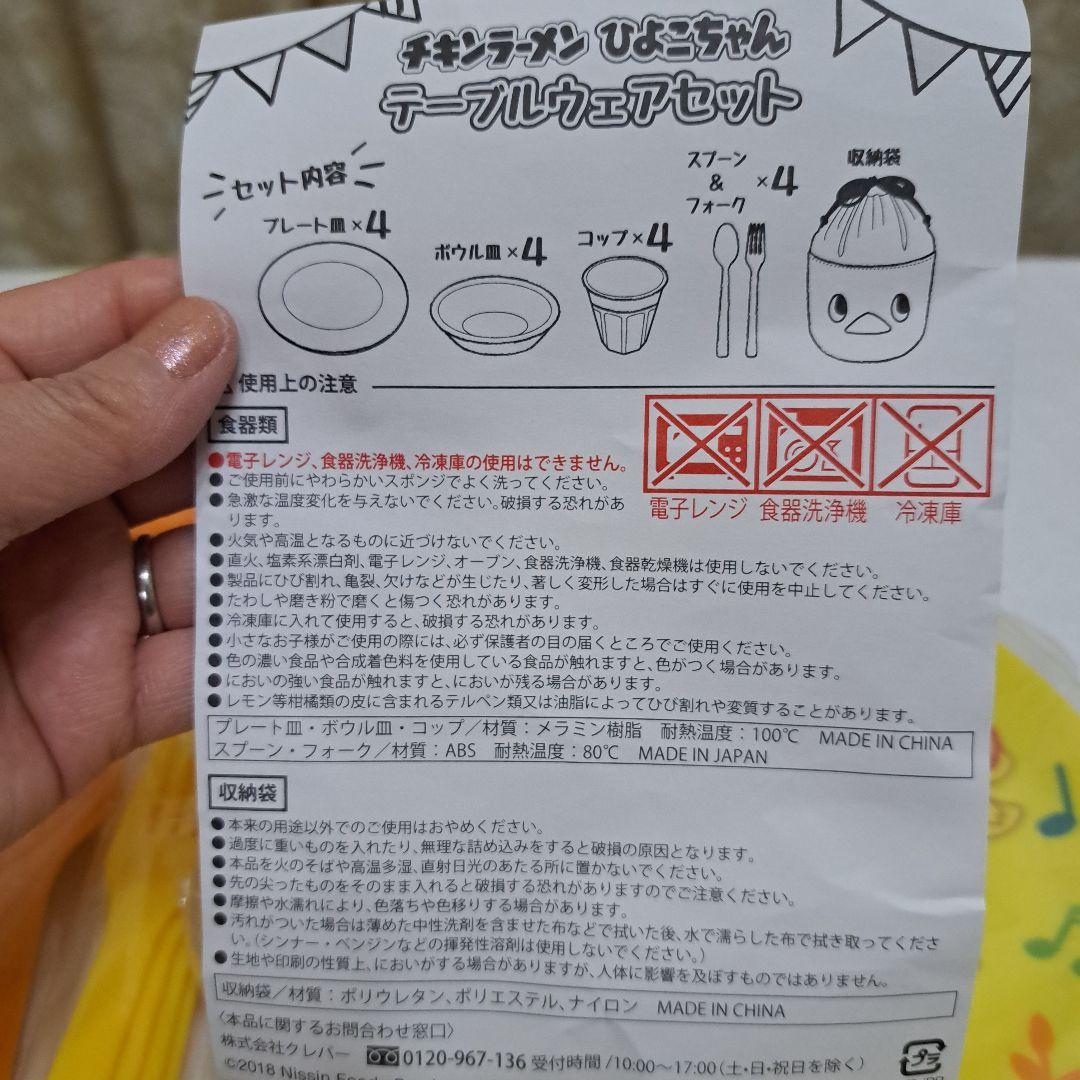 チキンラーメン ひよこちゃん
テーブルウェアセット
セット内容
プレート皿×4
ボウル皿×4
コップ×4
スプーン
&
フォーク
×4
収納袋
使用上の注意
食器類
●電子レンジ、食器洗浄機、冷凍庫の使用はできません。
●ご使用前にやわらかいスポンジでよく洗ってください。
●急激な温度変化を与えないでください。破損する恐れがあ
ります。
●火気や高温となるものに近づけないでください。
●直火、塩素系漂白剤、電子レンジ、オーブン、食器洗浄機、食器乾燥機は使用しないでください。
●製品にひび割れ、亀裂、欠けなどが生じたり、著しく変形した場合はすぐに使用を中止してください。
●たわしや磨き粉で磨くと傷つく恐れがあります。
●冷凍庫に入れて使用すると、破損する恐れがあります。
●小さなお子様がご使用の際には、必ず保護者の目の届くところでご使用ください。
●色の濃い食品や合成着色料を使用している食品が触れますと、色がつく場合があります。
●においの強い食品が触れますと、においが残る場合があります。
●レモン等柑橘類の皮に含まれるテルペン類又は油脂によってひび割れや変質することがあります。
電子レンジ 食器洗浄機 冷凍庫
プレート皿・ボウル皿・コップ/材質:メラミン樹脂 耐熱温度:100℃ MADE IN CHINA
スプーン・フォーク/材質:ABS 耐熱温度:80℃ MADE IN JAPAN
収納袋
●本来の用途以外でのご使用はおやめください。
●過度に重いものを入れたり、無理な詰め込みをすると破損の原因となります。
●本品を火のそばや高温多湿、直射日光のあたる所に置かないでください。
●先の尖ったものをそのまま入れると破損する恐れがありますのでご注意ください。
●摩擦や水濡れにより、色落ちや色移りする場合があります。
●汚れがついた場合は薄めた中性洗剤を含ませた布などで拭いた後、水で濡らした布で拭き取ってくださ
い。(シンナー・ベンジンなどの揮発性溶剤は使用しないでください。)
●生地や印刷の性質上、においがする場合がありますが、人体に影響を及ぼすものではありません。
収納袋/材質:ポリウレタン、ポリエステル、ナイロン MADE IN CHINA
〈本品に関するお問合わせ窓口〉
株式会社クレバー 0120-967-136 受付時間/10:00~17:00(土・日・祝日を除く)
©2018 Nissin
プラ